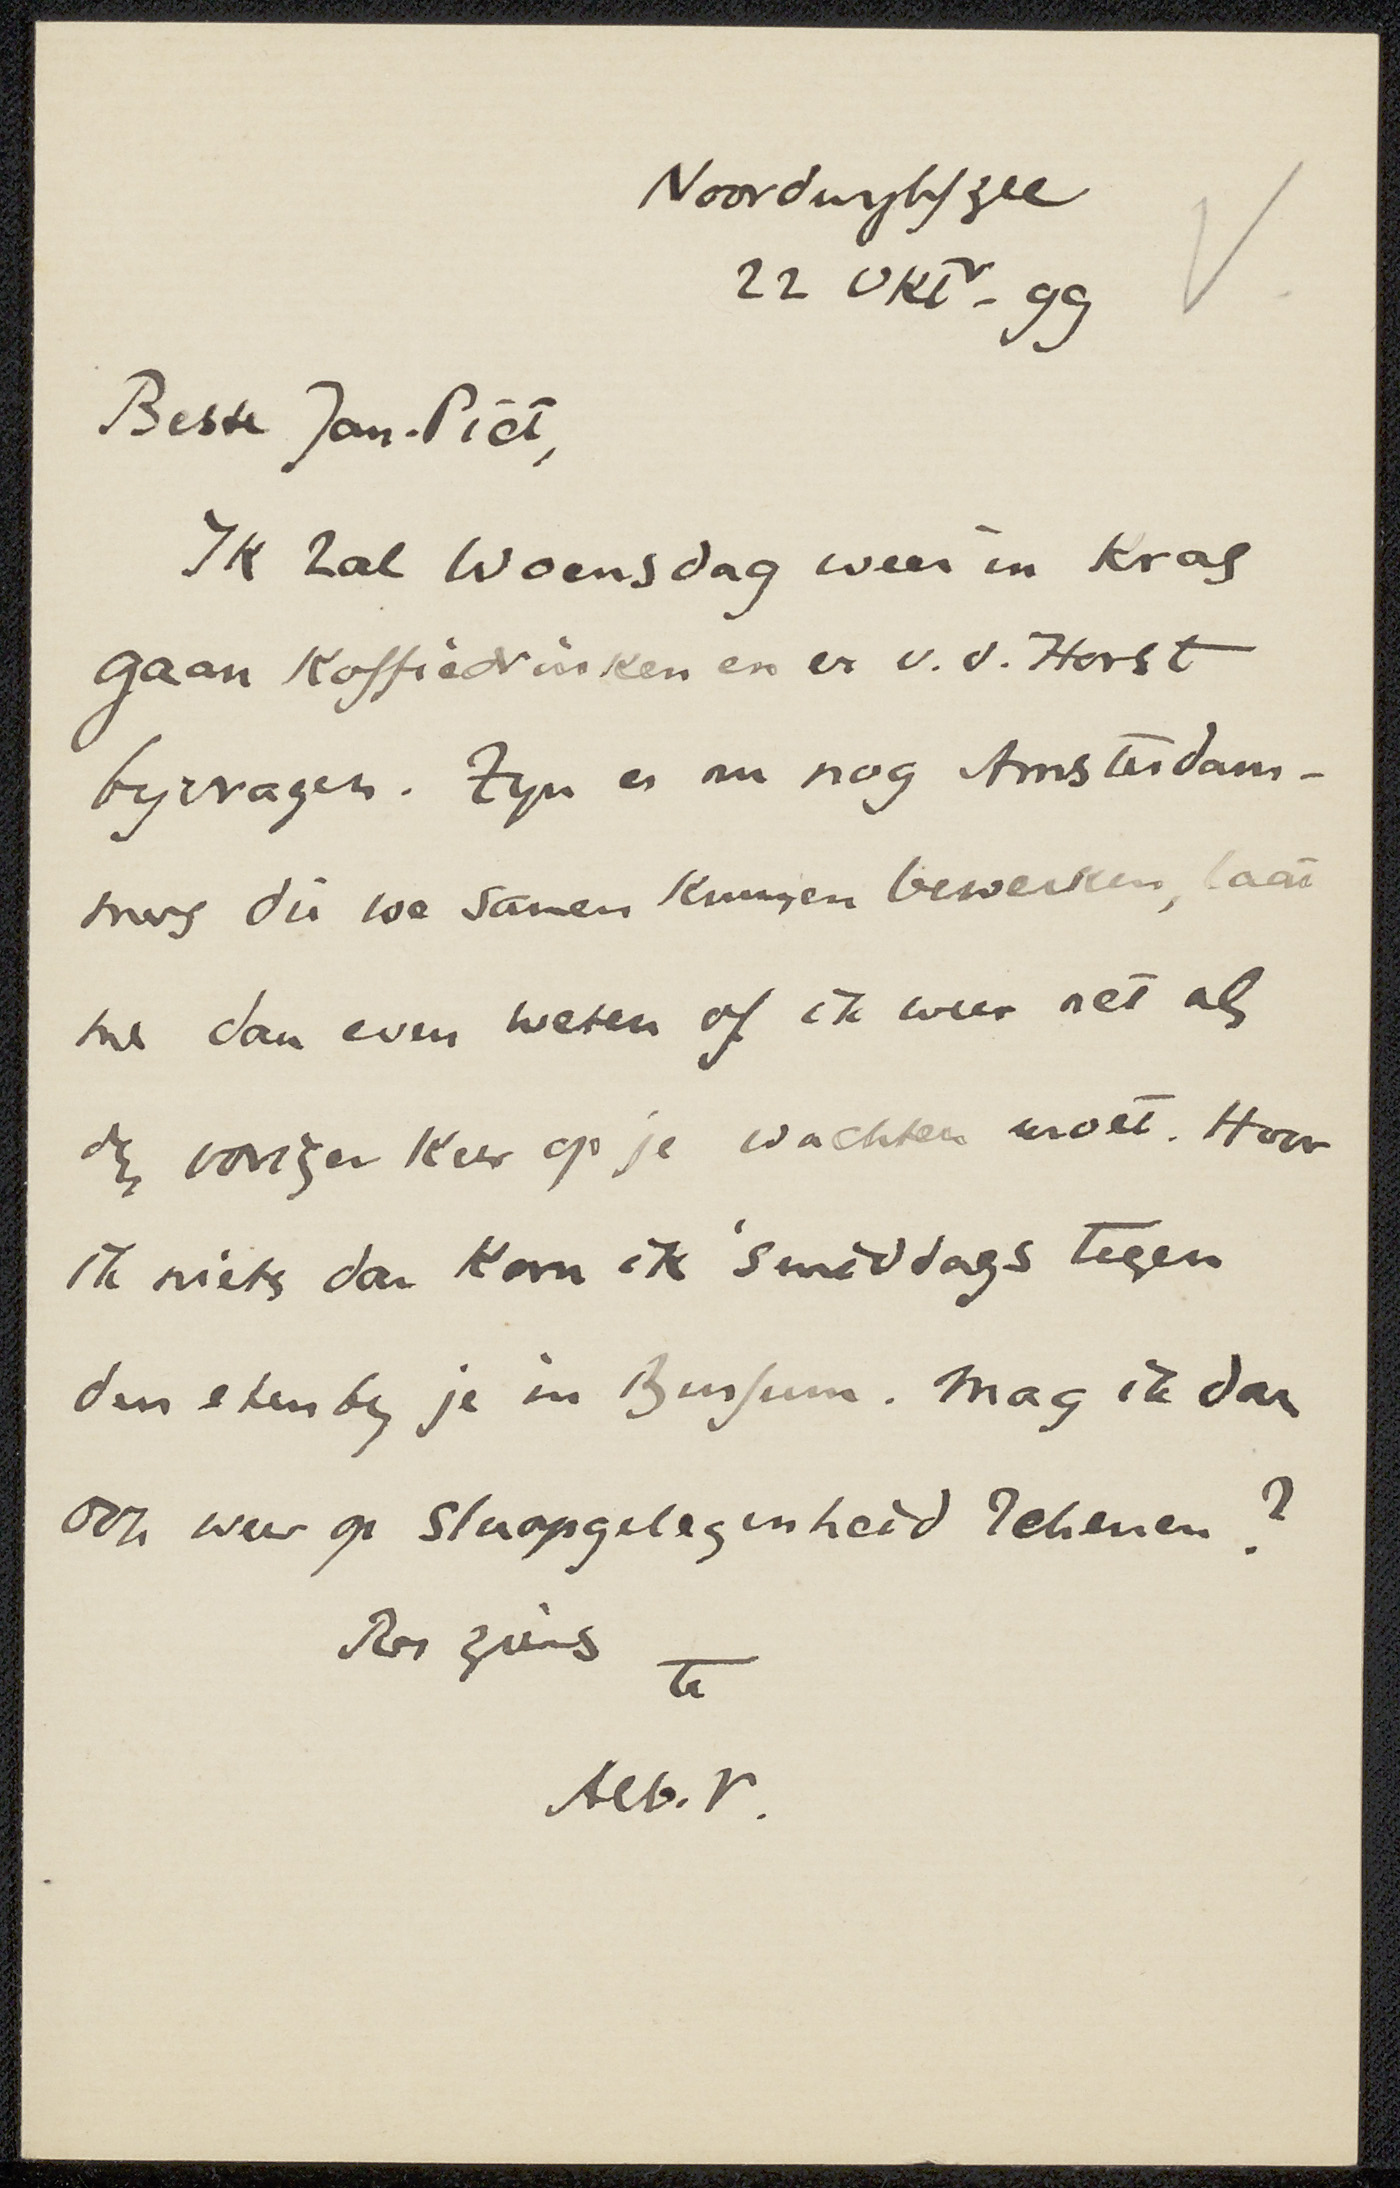 Noordwyk a/ zee
22 Oktr - 99
Beste Jan-Piet,
Ik zal Woensdag weer in Kras
gaan Koffiedrinken en er v. d. Horst
byvragen. Zyn er nu nog Amsterdam-
mers die we samen kunnen bewerken, laat
me dan even weten of ik weer net als
den vorigen Keer op je wachten moet. Hoor
ik niets dan Kom ik 'smiddags tegen
den eten by je in Bussum. Mag ik dan
ook weer op slaapgelegenheid rekenen?
tt
Alb. V.